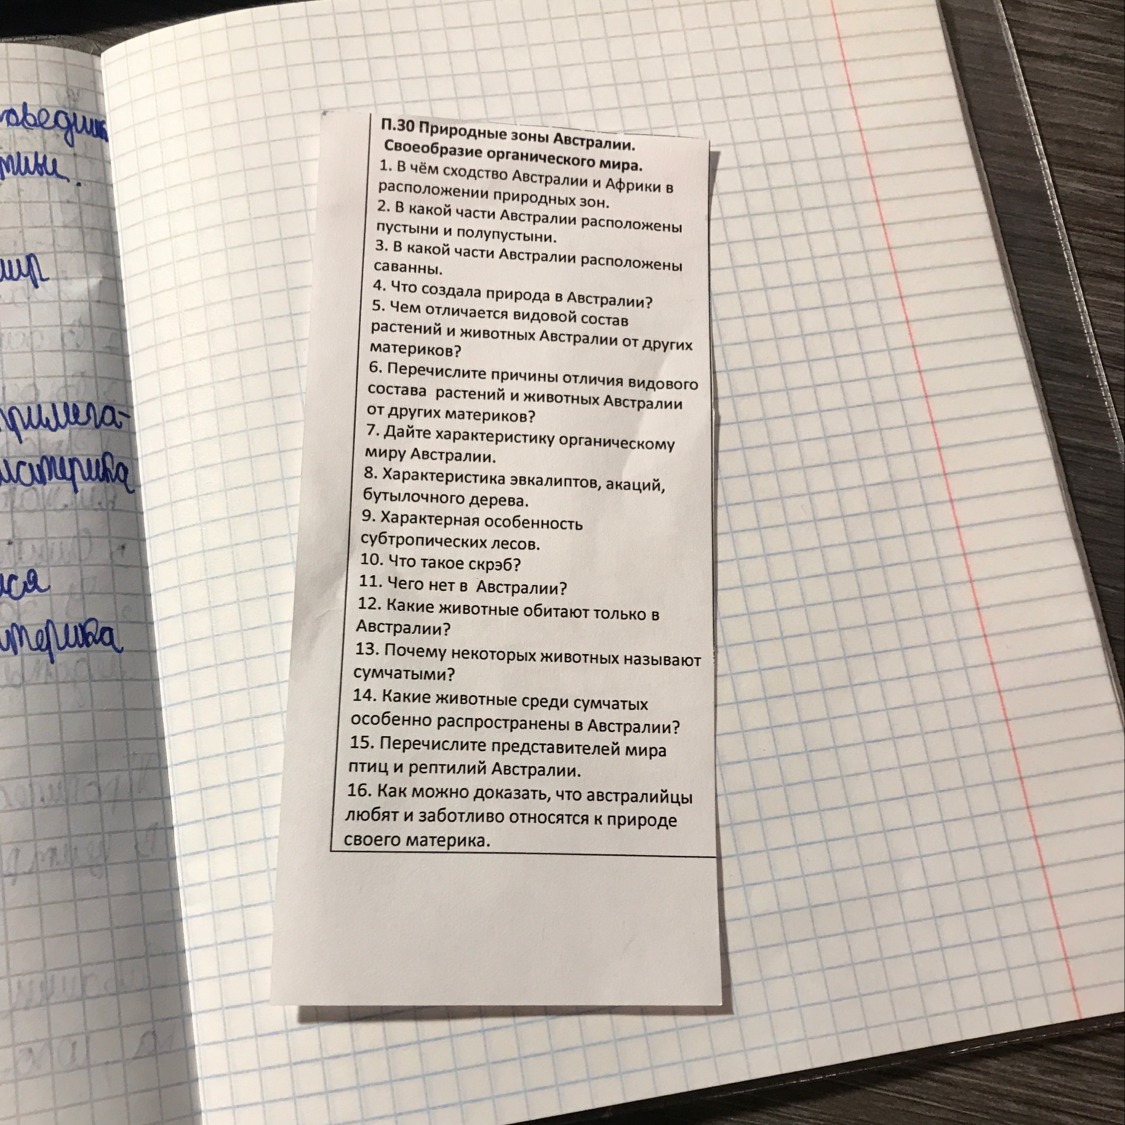 П.30 Природные зоны Австралии.
Своеобразие органического мира.
1. В чём сходство Австралии и Африки в
расположении природных зон.
2. В какой части Австралии расположены
пустыни и полупустыни.
3. В какой части Австралии расположены
саванны.
4. Что создала природа в Австралии?
5. Чем отличается видовой состав
растений и животных Австралии от других
материков?
6. Перечислите причины отличия видового
состава растений и животных Австралии
от других материков?
7. Дайте характеристику органическому
миру Австралии.
8. Характеристика эвкалиптов, акаций,
бутылочного дерева.
9. Характерная особенность
субтропических лесов.
10. Что такое скрэб?
11. Чего нет в Австралии?
12. Какие животные обитают только в
Австралии?
13. Почему некоторых животных называют
сумчатыми?
14. Какие животные среди сумчатых
особенно распространены в Австралии?
15. Перечислите представителей мира
птиц и рептилий Австралии.
16. Как можно доказать, что австралийцы
любят и заботливо относятся к природе
своего материка.
материка